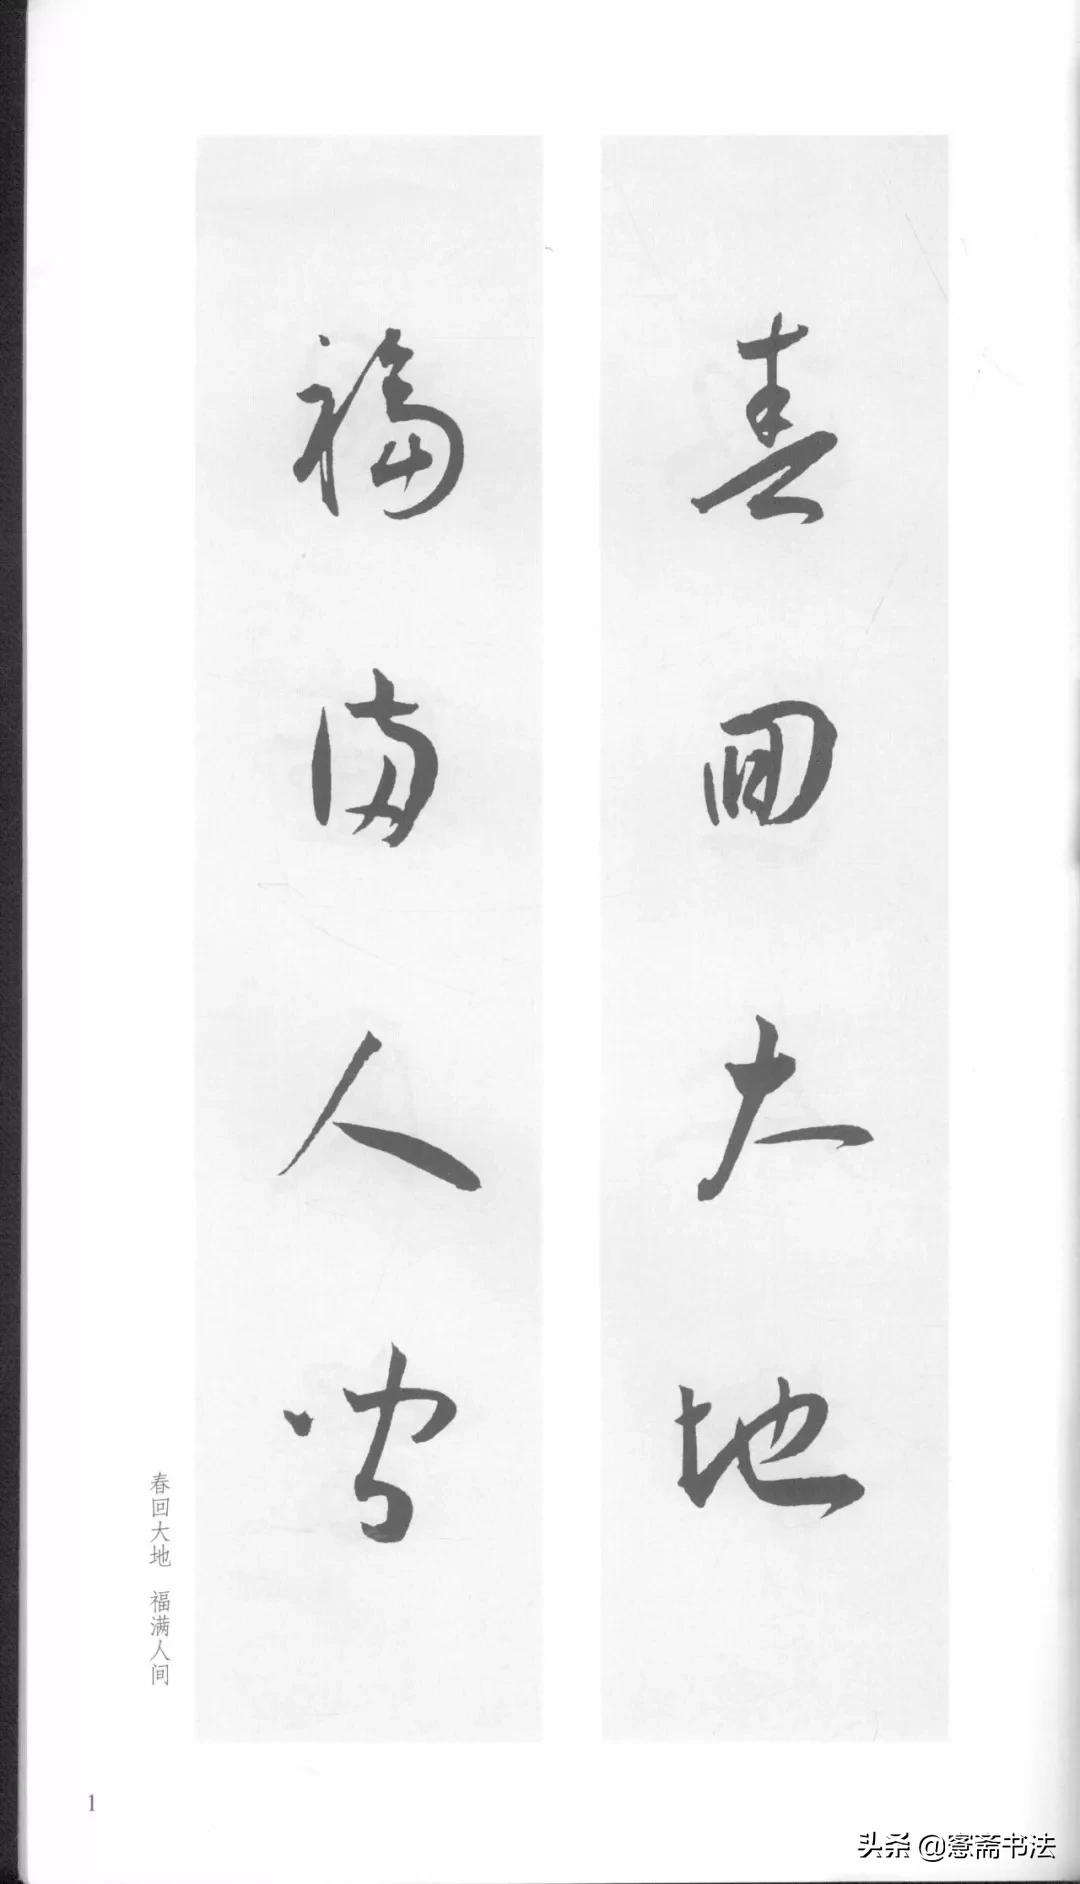 春回大地
福满人间
春回大地 福满人间
1
头条 @窻斋书法